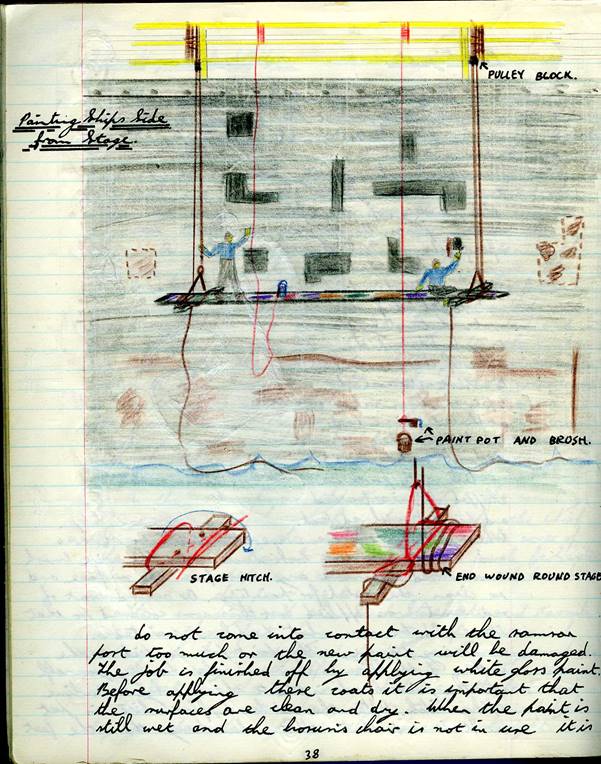 PULLEY BLOCK.
Painting Ships Side
from Stage.
PAINT POT AND BRUSH.
STAGE HITCH.
END WOUND ROUND STAGE
do not come into contact with the samson
post too much or the new paint will be damaged.
The job is finished off by applying white gloss paint.
Before applying these coats it is important that
the surfaces are clean and dry. When the paint is
still wet and the bosuns chair is not in use it is
38